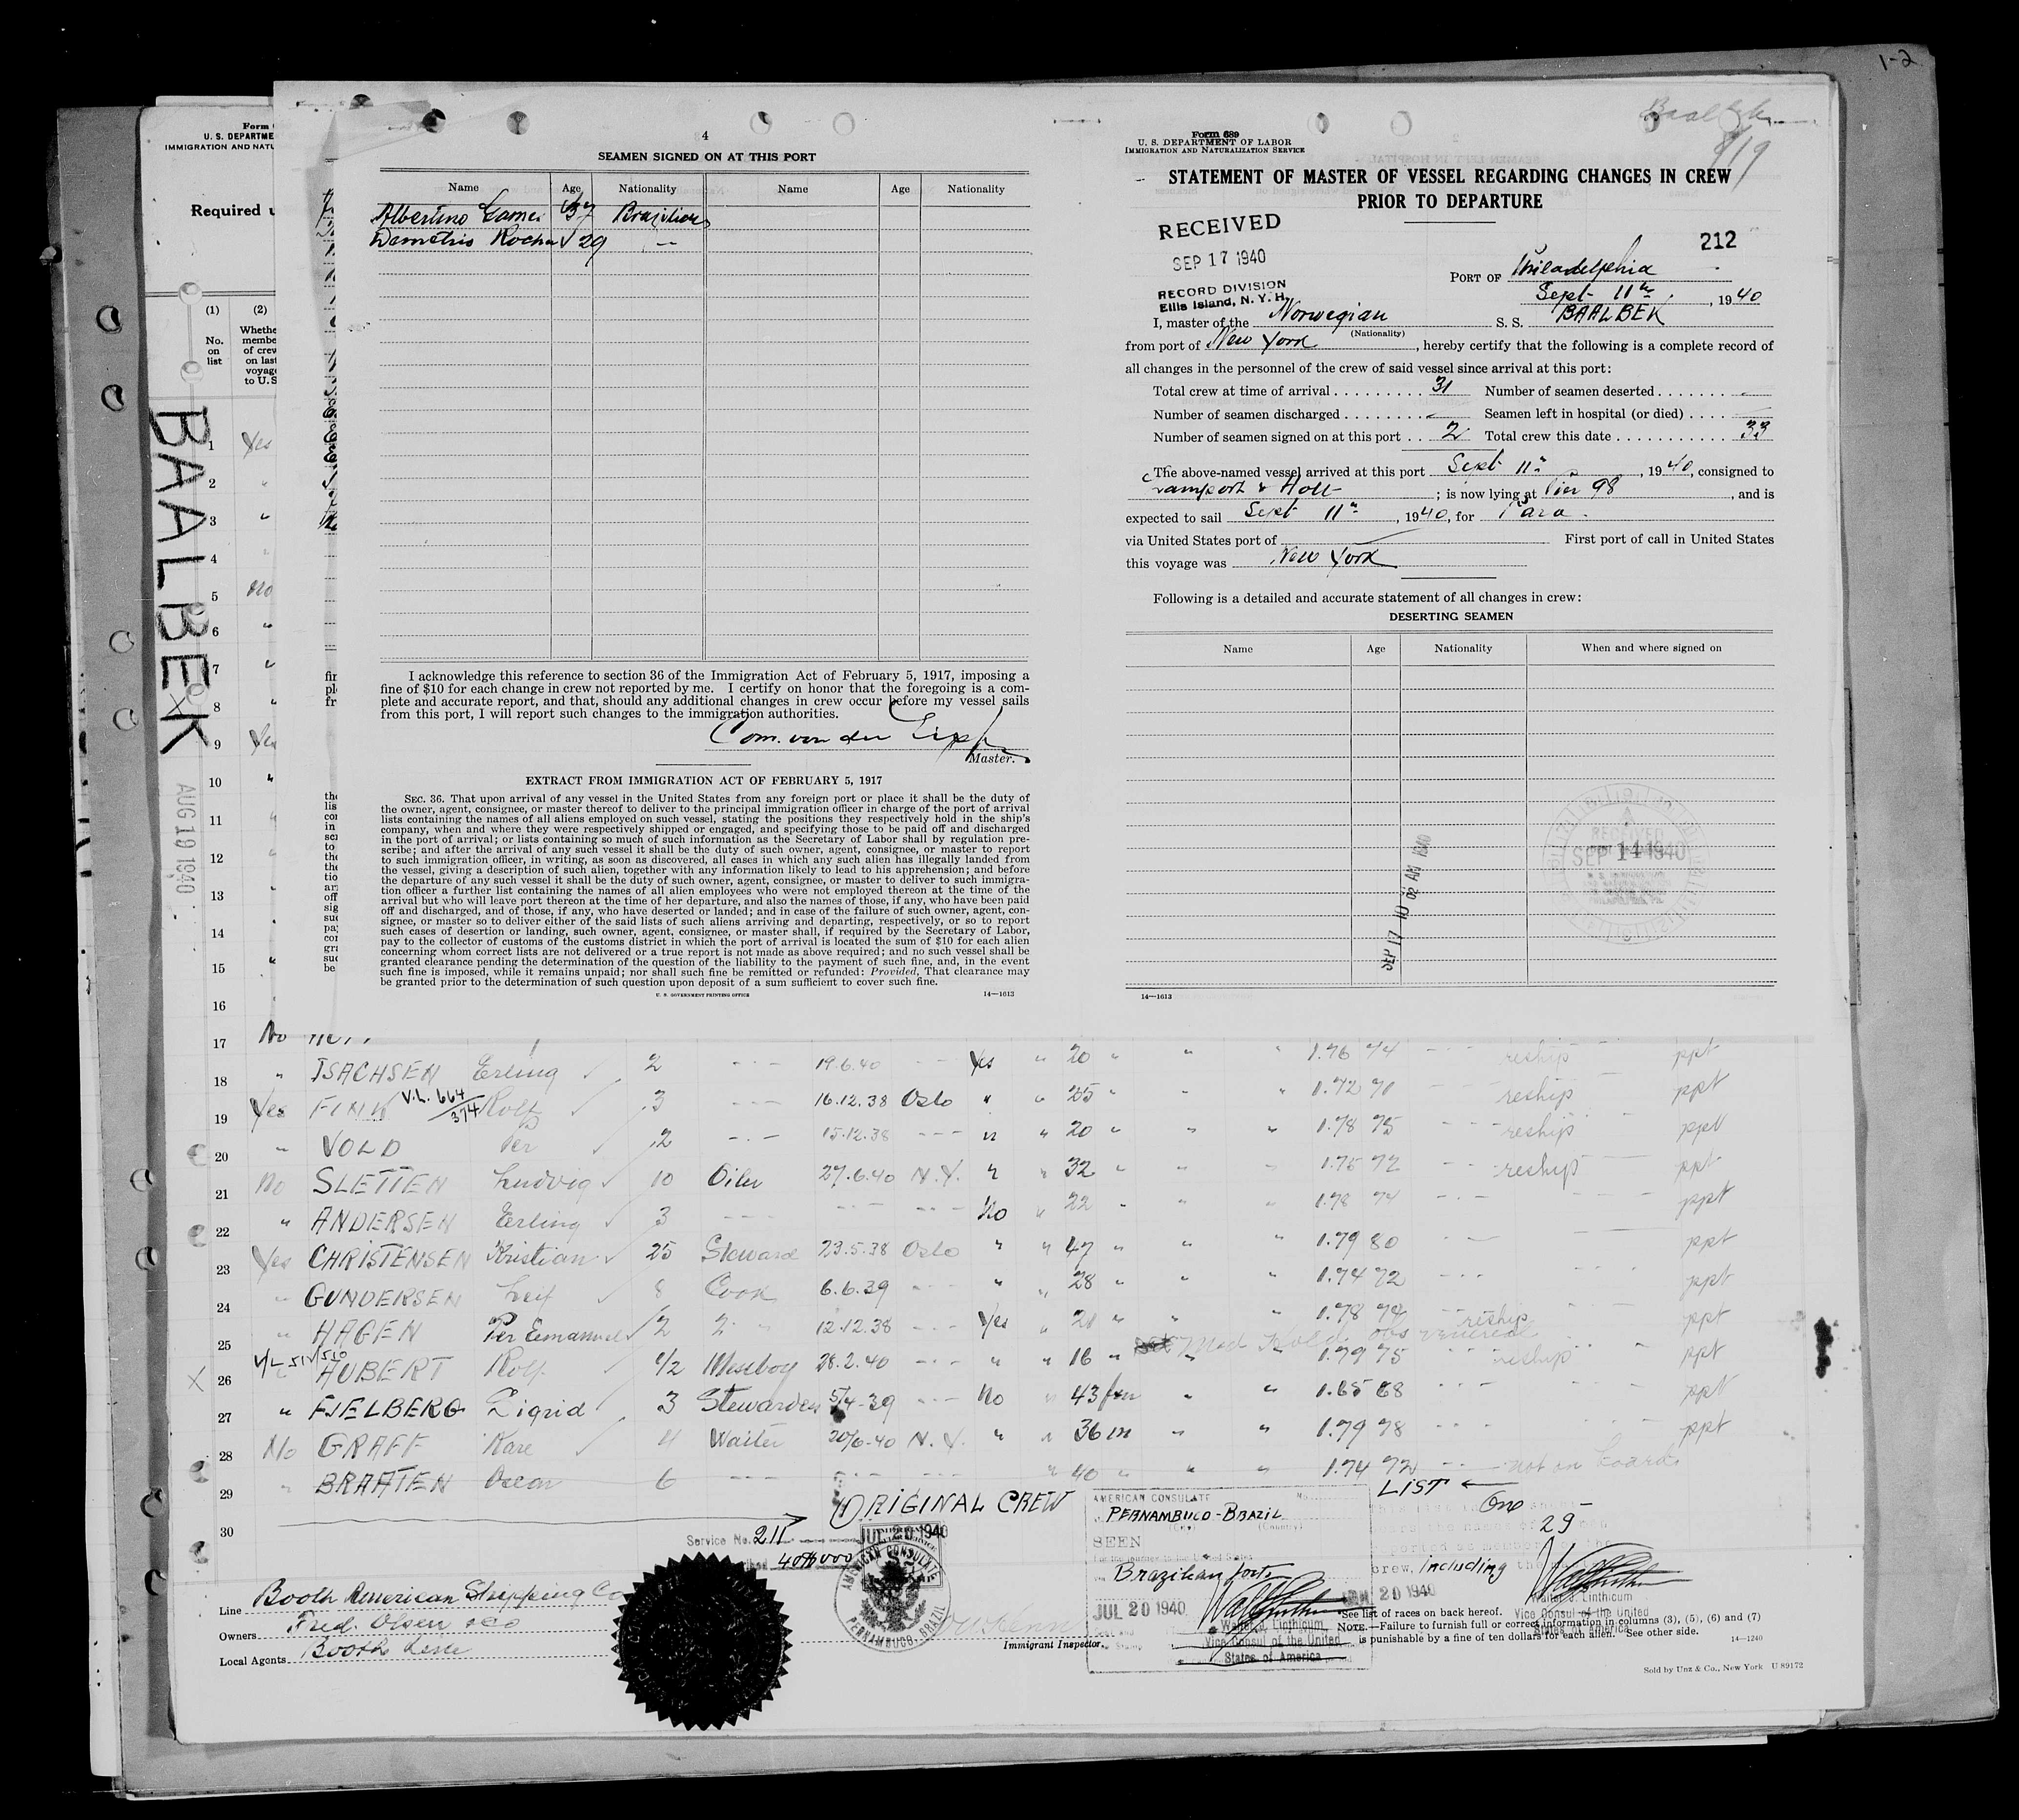 1-2
Form
U. S. DEPARTME
IMMIGRATION AND NATU
Required u
(1) (2)
No. on list
Whethe membe of crev on last voyage to U.S
BAALBEK
AUG 19 1940
4
SEAMEN SIGNED ON AT THIS PORT
Name Age Nationality Name Age Nationality
Albertino 37 Brazilian
Demetrio Rocha 29 —
I acknowledge this reference to section 36 of the Immigration Act of February 5, 1917, imposing a
fine of $10 for each change in crew not reported by me. I certify on honor that the foregoing is a com-
plete and accurate report, and that, should any additional changes in crew occur before my vessel sails
from this port, I will report such changes to the immigration authorities.
Com. von der
Master.
EXTRACT FROM IMMIGRATION ACT OF FEBRUARY 5, 1917
SEC. 36. That upon arrival of any vessel in the United States from any foreign port or place it shall be the duty of
the owner, agent, consignee, or master thereof to deliver to the principal immigration officer in charge of the port of arrival
lists containing the names of all aliens employed on such vessel, stating the positions they respectively hold in the ship's
company, when and where they were respectively shipped or engaged, and specifying those to be paid off and discharged
in the port of arrival; or lists containing so much of such information as the Secretary of Labor shall by regulation pre-
scribe; and after the arrival of any such vessel it shall be the duty of such owner, agent, consignee, or master to report
to such immigration officer, in writing, as soon as discovered, all cases in which any such alien has illegally landed from
the vessel, giving a description of such alien, together with any information likely to lead to his apprehension; and before
the departure of any such vessel it shall be the duty of such owner, agent, consignee, or master to deliver to such immigra-
tion officer a further list containing the names of all alien employees who were not employed thereon at the time of the
arrival but who will leave port thereon at the time of her departure, and also the names of those, if any, who have been paid
off and discharged, and of those, if any, who have deserted or landed; and in case of the failure of such owner, agent, con-
signee, or master so to deliver either of the said lists of such aliens arriving and departing, respectively, or so to report
such cases of desertion or landing, such owner, agent, consignee, or master shall, if required by the Secretary of Labor,
pay to the collector of customs of the customs district in which the port of arrival is located the sum of $10 for each alien
concerning whom correct lists are not delivered or a true report is not made as above required; and no such vessel shall be
granted clearance pending the determination of the question of the liability to the payment of such fine, and, in the event
such fine is imposed, while it remains unpaid; nor shall such fine be remitted or refunded: Provided, That clearance may
be granted prior to the determination of such question upon deposit of a sum sufficient to cover such fine.
U. S. GOVERNMENT PRINTING OFFICE 14—1613
Baalbek
Form 689
U. S. DEPARTMENT OF LABOR
IMMIGRATION AND NATURALIZATION SERVICE
STATEMENT OF MASTER OF VESSEL REGARDING CHANGES IN CREW
PRIOR TO DEPARTURE
RECEIVED
SEP 17 1940
RECORD DIVISION
Ellis Island, N. Y. H.
212
PORT OF Philadelphia
Sept 11th, 1940
I, master of the Norwegian S. S. BAALBEK
(Nationality)
from port of New York, hereby certify that the following is a complete record of
all changes in the personnel of the crew of said vessel since arrival at this port:
Total crew at time of arrival 31 Number of seamen deserted —
Number of seamen discharged — Seamen left in hospital (or died) —
Number of seamen signed on at this port 2 Total crew this date 33
The above-named vessel arrived at this port Sept 11th, 1940, consigned to
Lamport & Holt; is now lying at Pier 98, and is
expected to sail Sept 11th, 1940, for Para.
via United States port of — First port of call in United States
this voyage was New York
Following is a detailed and accurate statement of all changes in crew:
DESERTING SEAMEN
Name Age Nationality When and where signed on
RECEIVED
SEP 14 1940
SEP 17 10 02 AM 1940
14—1613
1 Yes
2 "
3 "
4 "
5 No
6 "
7 "
8 "
9 Yes
10 "
11 "
12 "
13 "
14 "
15 "
16
17 No
18 " ISACHSEN Erling 2 - - - 19.6.40 Yes " 20 " " " 1.76 74 reship ppt
19 Yes FINN V.L. 664/374 Rolf 3 - - - 16.12.38 Oslo " " 25 " " 1.72 70 reship ppt
20 " VOLD Per 2 - - - 15.12.38 - - - " " 20 " " " 1.78 75 reship ppt
21 No SLETTEN Ludvig 10 Oiler 27.6.40 N.Y. " " 32 " " " 1.75 72 reship ppt
22 " ANDERSEN Erling 3 - - - - - - - - - No " 22 " " " 1.78 74 ppt
23 Yes CHRISTENSEN Kristian 25 Steward 23.5.38 Oslo " " 47 " " " 1.79 80 ppt
24 " GUNDERSEN Leif 8 Cook 6.6.39 - - - " " 28 " " " 1.74 72 ppt
25 " HAGEN Per Emanuel 2 2 " 12.12.38 - - - Yes " 21 " " 1.78 74 reship ppt
Med Hold obs venereal
X 26 HUBERT Rolf 1/2 Messboy 28.2.40 - - - " " 16 " " " 1.79 75 reship ppt
27 " FJELBERG Sigrid 3 Stewardess 5/4-39 - - - No " 43 fem " " 1.65 68 ppt
28 No GRAFF Kare 4 Waiter 20/6-40 N.Y. " " 36 m " " 1.79 78 ppt
29 " BRAATEN Oscar 6 - - - - - - - - - " 40 " " " 1.74 72 not on board
30
ORIGINAL CREW
LIST ←
One
29
crew, including the
Service No. 211
JUL 20 1940
AMERICAN CONSULATE
PERNAMBUCO, BRAZIL
AMERICAN CONSULATE No.
PERNAMBUCO-BRAZIL
(City) (Country)
SEEN
Brazilian ports
JUL 20 1940
Walter J. Linthicum
Vice Consul of the United
States of America
JUL 20 1940
Walter J. Linthicum
Vice Consul of the United
States of America
Line Booth American Shipping Co
Owners Fred. Olsen & Co
Local Agents Booth Line
Immigrant Inspector.
See list of races on back hereof.
NOTE.—Failure to furnish full or correct information in columns (3), (5), (6) and (7)
is punishable by a fine of ten dollars for each alien. See other side.
14—1240
Sold by Unz & Co., New York U 89172